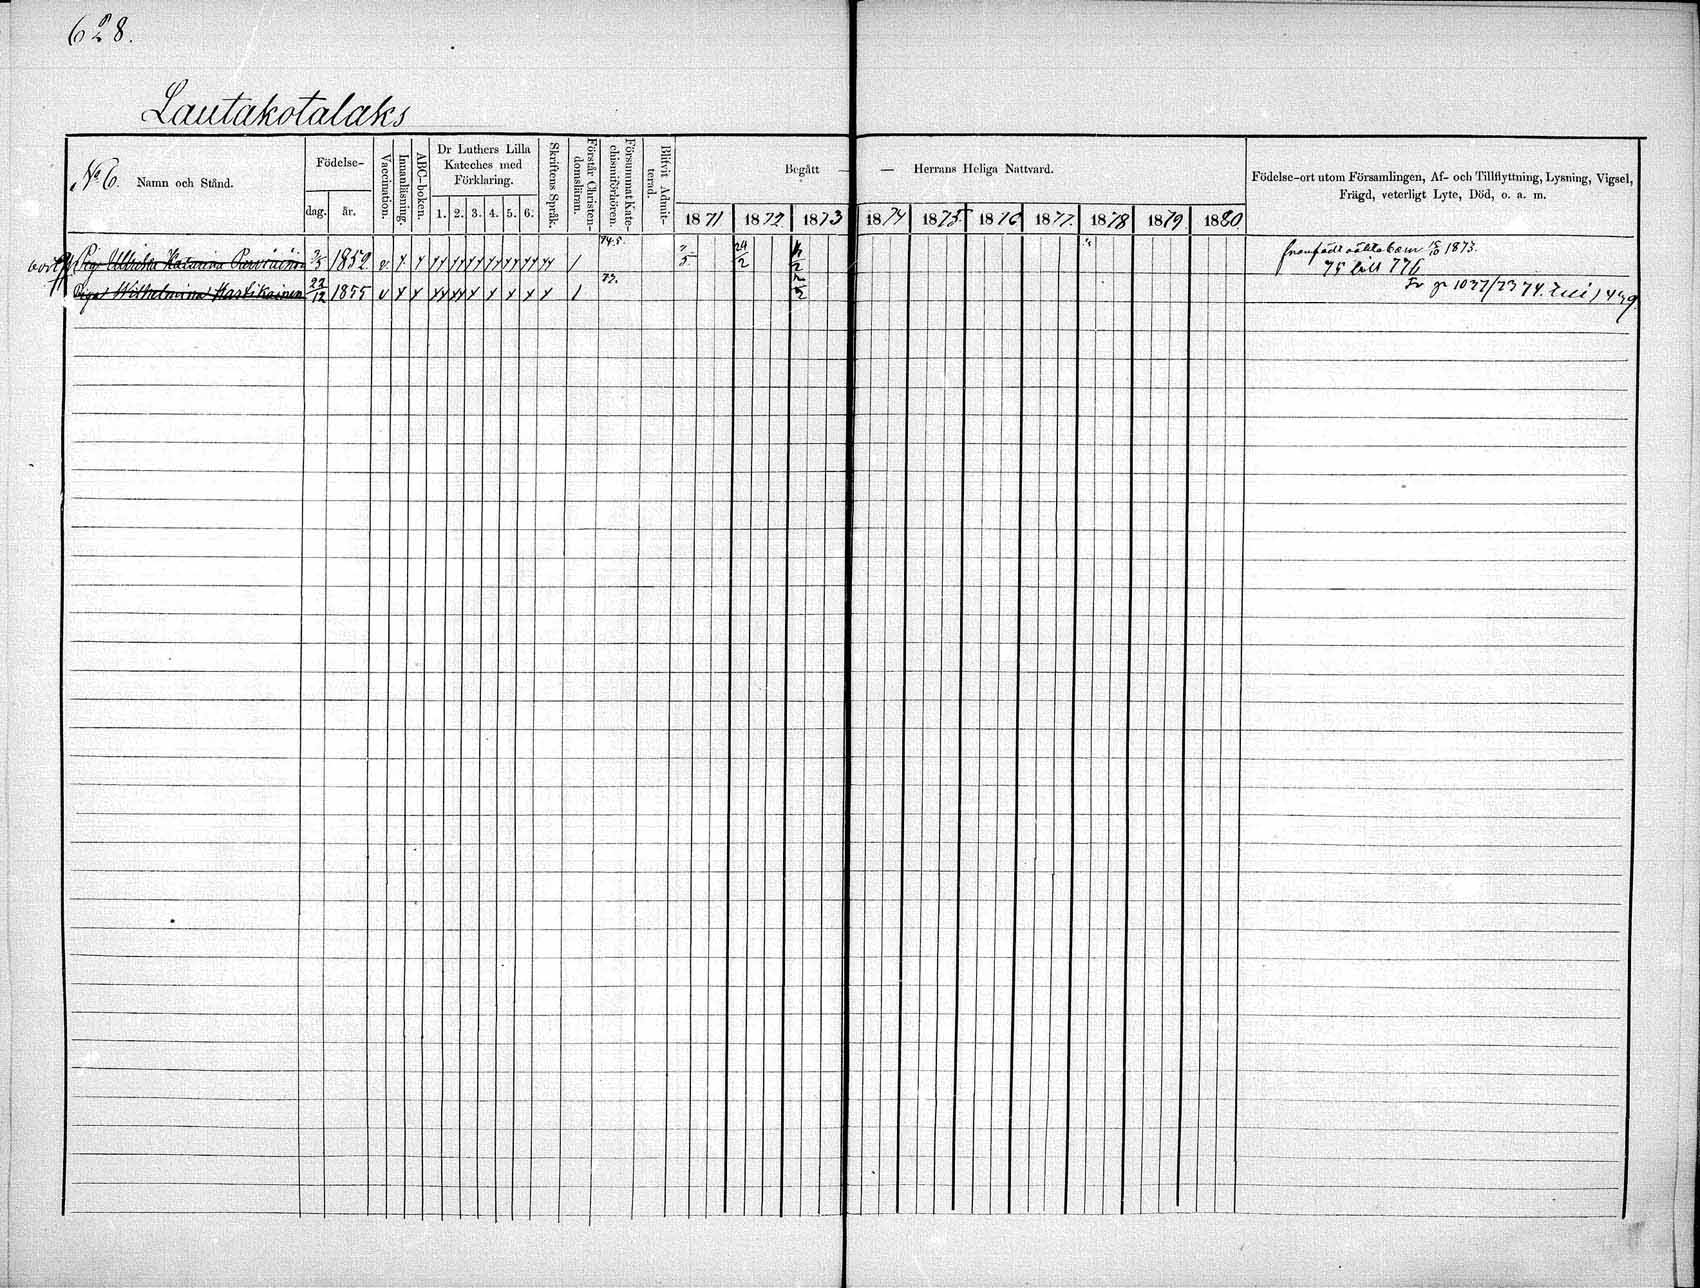 628.
Lautakotalaks
No 6. Namn och Stånd.
Födelse-
dag. år.
Vaccination.
Innanläsning.
ABC-boken.
Dr Luthers Lilla
Kateches med
Förklaring.
1. 2. 3. 4. 5. 6.
Skriftens Språk.
Förstår Christen-
domsläran.
Försummat Kate-
chismiförhören.
Blifvit Admit-
terad.
Begått — — Herrans Heliga Nattvard.
1871 1872 1873 1874 1875 1876 1877 1878 1879 1880
Födelse-ort utom Församlingen, Af- och Tillflyttning, Lysning, Vigsel,
Frägd, veterligt Lyte, Död, o. a. m.
bort Pig. Ullrika Katarina 1852 v. 74.5. 7/5 24/2 15/10 1873.
75 till 776
Piga Wilhelmina Hastikainen 22/12 1855 v 73. Fr p 1037/73 74.